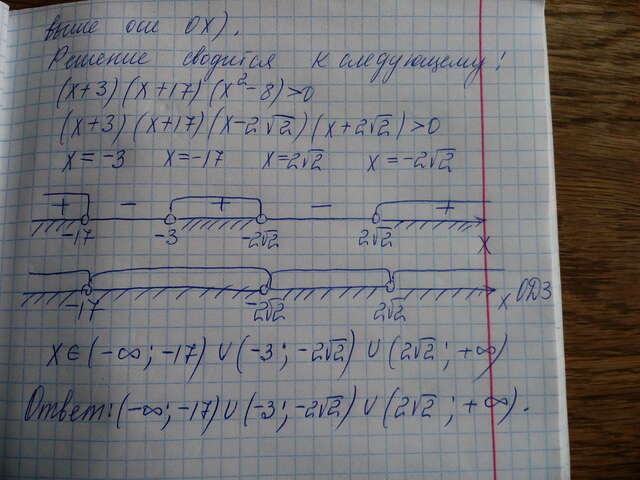 выше оси OX).
Решение сводится к следующему:
(x+3)(x+17)(x²-8)>0
(x+3)(x+17)(x-2√2)(x+2√2)>0
x=-3 x=-17 x=2√2 x=-2√2
+ - + - +
-17 -3 -2√2 2√2 x
-17 -2√2 2√2 x ОДЗ
x∈(-∞;-17)∪(-3;-2√2)∪(2√2;+∞)
Ответ:(-∞;-17)∪(-3;-2√2)∪(2√2;+∞).